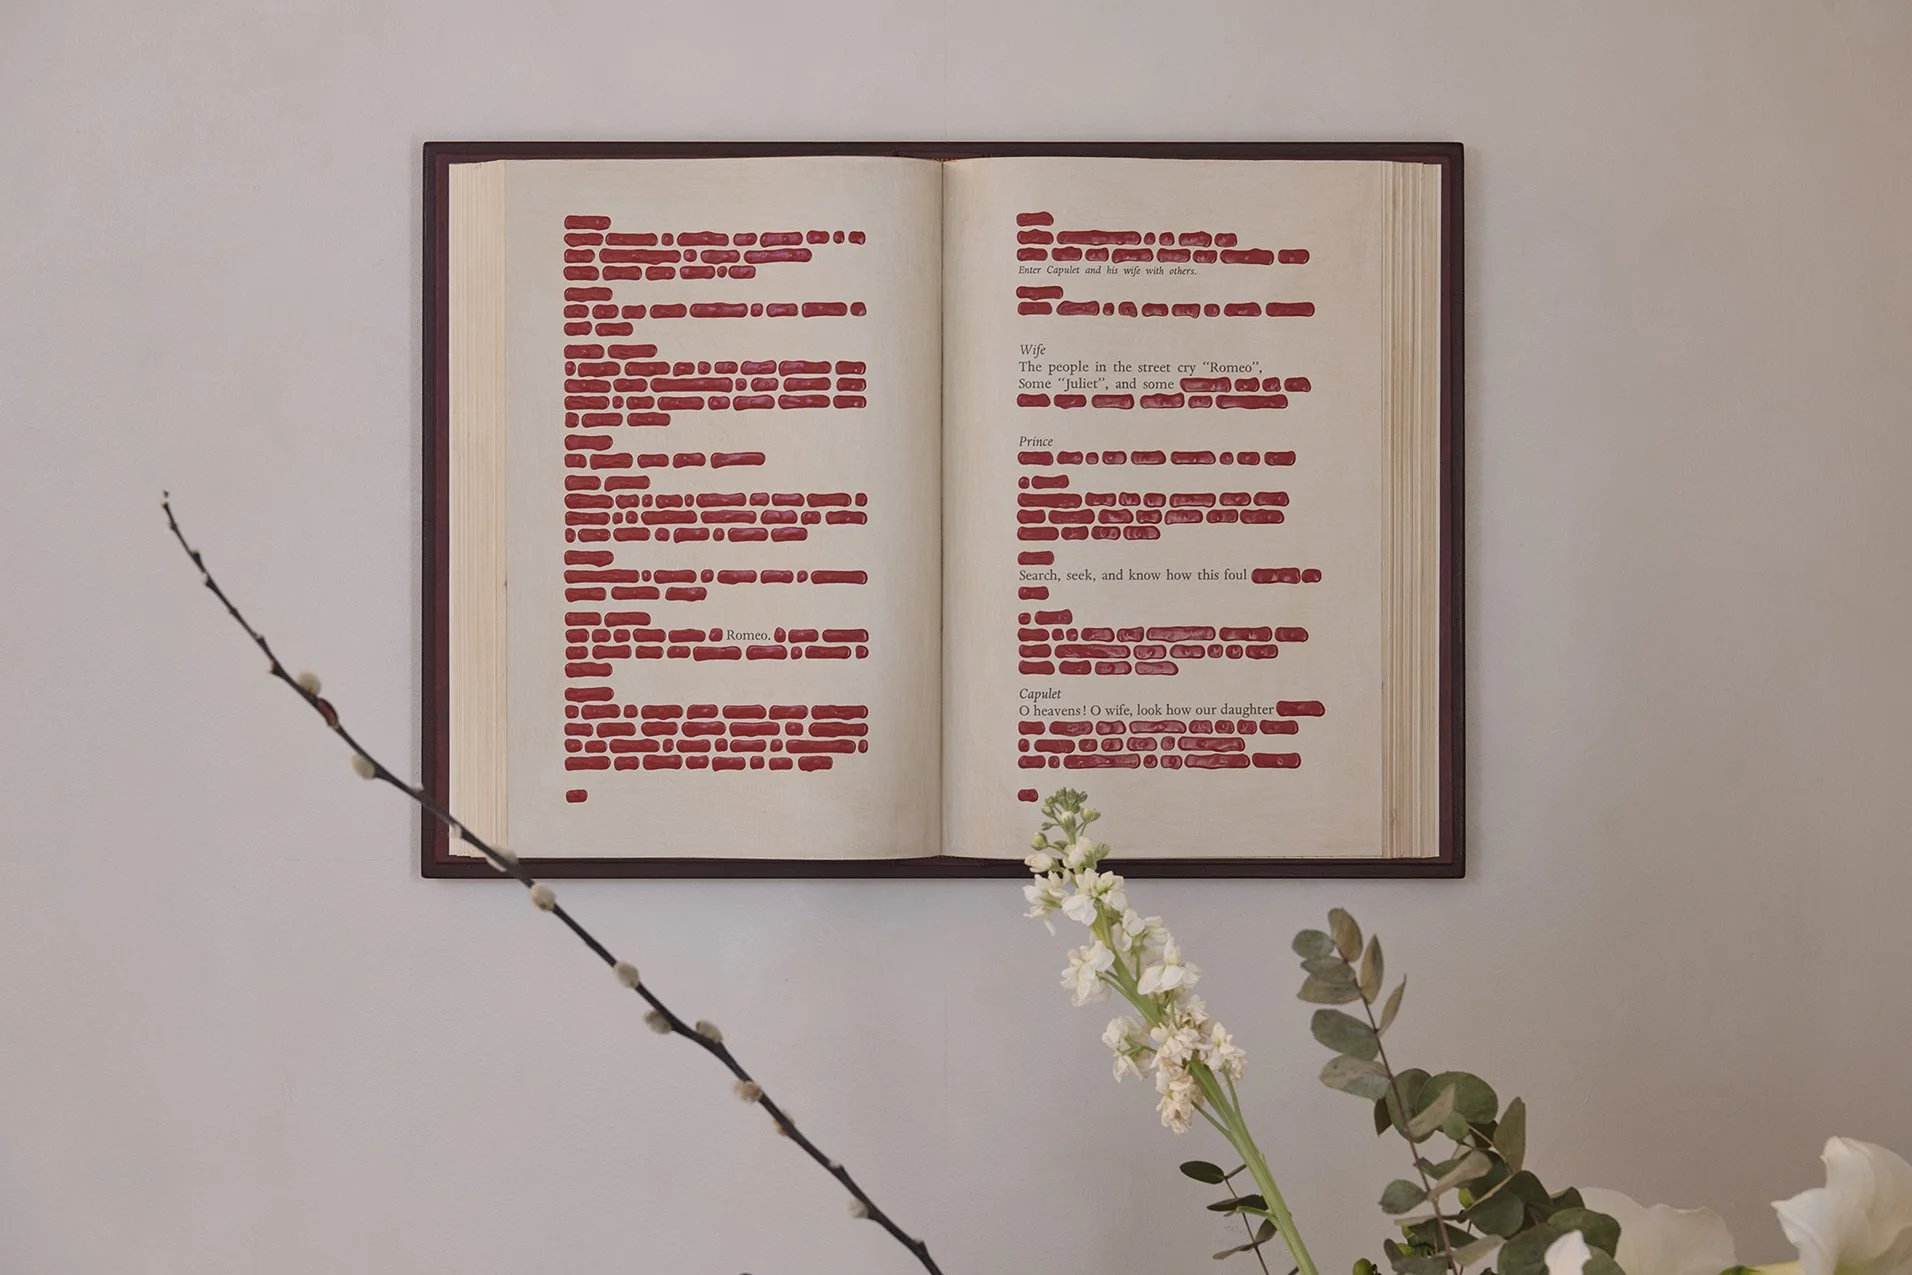 Romeo.
Enter Capulet and his wife with others.
Wife
The people in the street cry “Romeo”,
Some “Juliet”, and some
Prince
Search, seek, and know how this foul
Capulet
O heavens! O wife, look how our daughter